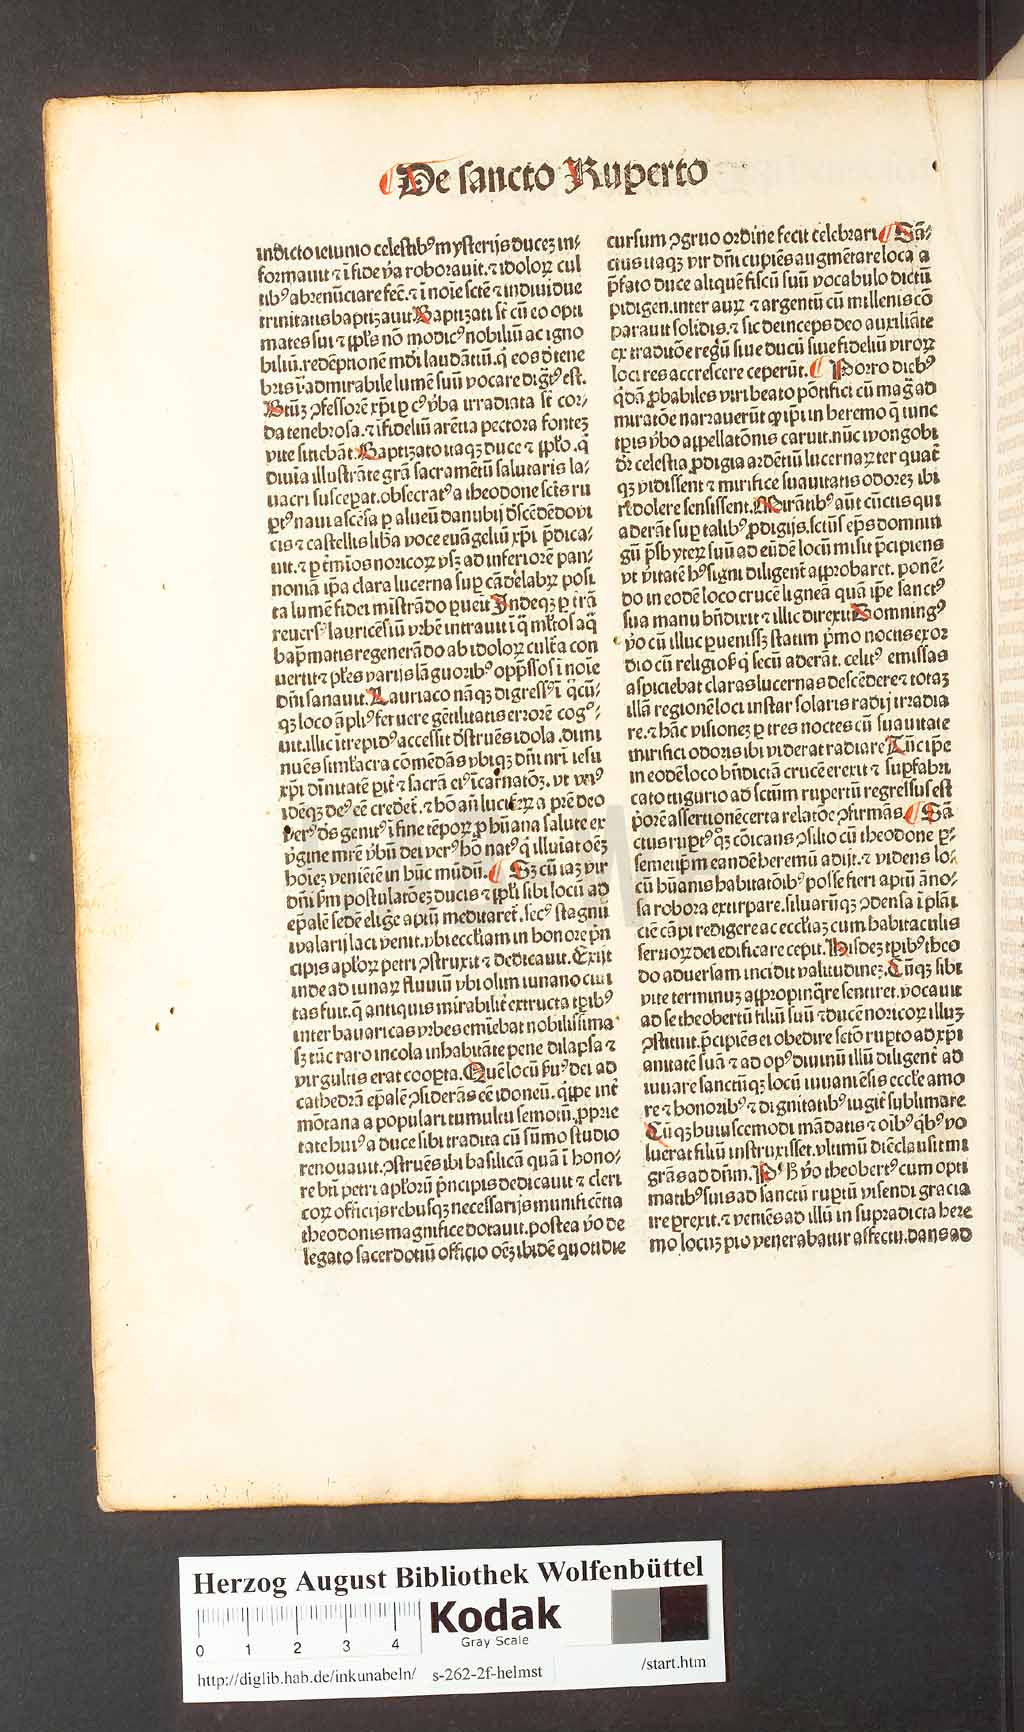 De sancto Ruperto
indicto ieiunio celestibꝰ mysterijs ducez in⸗
formauit ⁊ ī fide v̄a roborauit. ⁊ idoloꝝ cul
tibꝰ abrenūciare fec̄. ⁊ ī noīe sctē ⁊ indiuidue
trinitatis baptizauit Baptizati st̄ cū eo opti
mates sui ⁊ ꝓpl̓s nō modicꝰ nobiliū ac igno
biliū. redēptionē mūdi laudātiū. q̇ eos d̓ tene
bris ī admirabile lumē suū vocare dig̈tꝰ est.
Btūz ꝯfessorē xp̄i ꝑ cꝰ v̓ba irradiata st̄ cor⸗
da tenebrosa. ⁊ īfideliū arētia pectora fontez
vite sitiebāt. Baptizato itaqꝫ duce ⁊ ꝓpl̓o. q̈
diuīa illustrāte grā sacramētū salutaris la⸗
uacri susceꝑat. obsecratꝰ a theodone sct̄s ru
ꝑtꝰ naui ascēsa ꝑ alueū danubij d̓scēdēdo vi
cis ⁊ castellis lib̓a voce euāgeliū xp̄i p̄dica⸗
uit. ⁊ ꝑ t̓mīos noricoꝝ vsqꝫ ad inferiorē pan⸗
noniā īp̄a clara lucerna suꝑ cādelabꝝ posi
ta lumē fidei mīstrādo ꝑueīt Indeqꝫ ꝑ t̓rā
reuersꝰ lauricēsiū vrbē intrauit ī q̈ ml̓tos aq̈
bap̄matis regenerādo ab idoloꝝ cult̓a con
uertit ⁊ pl̓es varijs lāguoribꝰ opp̄ssos ī noīe
dn̄i sanauit. Lauriaco nāqꝫ digressꝰ ī q̇cū⸗
qꝫ loco āpliꝰ feruere gētilitatis errorē cogꝰ⸗
uit. illic ītrepidꝰ accessit d̓struēs idola. dimi
nuēs siml̓acra cōmēdās vbiqꝫ dn̄i nr̄i iesu
xp̄i diuītatē ꝑit̓ ⁊ sacrā eiꝰ īcarnatōꝫ. vt vnꝰ
idēqꝫ deꝰ ēē credet̓. ⁊ hō an̄ lucif̓ꝝ a pr̄e deo
verꝰ d̓s genitꝰ ī fine tēpoꝝ ꝓ hūana salute ex
v̓gine mr̄e v̓bū dei verꝰ hō natꝰ q̇ illuīat oēꝫ
hoīeꝫ veniētē in hūc mūdū. Sꝫ cū iaꝫ vir
dn̄i sm̄ postulatōeꝫ ducis ⁊ ꝓpl̓i sibi locū ad
ep̄alē sedē elig̓e aptū meditaret̓. secꝰ stagnū
walarij laci venit. vbi eccl̓iam in honore p̄n
cipis apl̓oꝝ petri ꝯstruxit ⁊ dedicauit. Exijt
inde ad iuuaꝝ fluuiū vbi olim iuuano ciui
tas fuit. q̄ antiquis mirabilit̓ extructa tꝑibꝰ
inter bauaricas vrbes emīebat nobilissima
sꝫ tūc raro incola inhabitāte pene dilapsa ⁊
virgultis erat cooꝑta. Quē locū fuꝰ dei ad
cathedrā ep̄alē ꝯsiderās eē idoneū. q̇ppe int̓
mōtana a populari tumultu semotū. ꝓprie
tate huiꝰ a duce sibi tradita cū sūmo studio
renouauit. ꝯstruēs ibi basilicā quā ī hono⸗
re btī petri apl̓orū p̄ncipis dedicauit ⁊ cleri
coꝝ officijs rebusqꝫ necessarijs munificētia
theodonis magnifice dotauit. postea v̓o de
legato sacerdotiū officio oēꝫ ibidē quotidie
cursum ꝯgruo ordine fecit celebrari Sā⸗
ctus itaqꝫ vir dn̄i cupiēs augmētare loca a
p̄fato duce aliquē fiscū suū vocabulo dictū
pidigen. inter auꝝ ⁊ argentū cū millenis cō
parauit solidis. ⁊ sic deinceps deo auxiliāte
ex traditōe regū siue ducū siue fideliū viroꝝ
loci res accrescere ceperūt. Porro diebꝰ
q̇dā ꝓbabiles viri beato pōtifici cū mag̈ ad
miratōe narrauerūt qꝛ ip̄i in heremo q̄ tunc
tꝑis v̓bo appellatōnis caruit. nūc vōgobi
dr̄ celestia ꝓdigia ardētiū lucernaꝝ ter quat̓
qꝫ vidissent ⁊ mirifice suauitatis odoreꝫ ibi
redolere sensissent. Mirātibꝰ aūt cūctis qui
aderāt suꝑ talibꝰ ꝓdigijs. sctūs ep̄s domnin
gū p̄sbyteꝝ suū ad eūdē locū misit p̄cipiens
vt v̓itatē hꝰ signi diligent̓ aꝓbaret. ponē⸗
do in eodē loco crucē ligneā quā ip̄e sanctꝰ
sua manu bn̄dixit ⁊ illic direxit Domningꝰ
v̓o cū illuc ꝑuenissꝫ statim p̄mo noctis exor
dio cū religiosꝰ q̇ secū aderāt. celitꝰ emissas
aspiciebat claras lucernas descēdere ⁊ totaꝫ
illā regionē loci instar solaris radij irradia
re. ⁊ hāc visioneꝫ ꝑ tres noctes cū suauitate
mirifici odoris ibi viderat radiare Tūc ip̄e
in eodē loco bn̄dictā crucē erexit ⁊ suꝑ fabri
cato tugurio ad sctūm rupertū regressus est
p̄orē assertionē certa relatōe ꝯfirmās Sā
ctus ruꝑtꝰ qꝫ cōicans ꝯsilio cū theodone ꝑ⸗
semetip̄m eandē heremū adijt. ⁊ videns lo⸗
cū hūanis habitatōibꝰ posse fieri aptū āno⸗
sa robora extirpare. siluarūqꝫ ꝯdensa ī plāi
ciē cāpi redigere ac eccl̓iaꝫ cum habitaculis
seruoꝝ dei edificare cepit. Hisdeꝫ tꝑibꝰ theo
do aduersam incidit valitudineꝫ. Cūqꝫ sibi
vite terminuꝫ appropinq̈re sentiret. vocauit
ad se theobertū filiū suū ⁊ ducē noricoꝝ illuꝫ
ꝯstituit. p̄cipiēs ei obedire sctō ruꝑto ad xp̄i
anitatē suā ⁊ ad opꝰ diuinū illū diligent̓ ad
iuuare sanctūqꝫ locū iuuaniēsis eccl̓e amo
re ⁊ honoribꝰ ⁊ dignitatibꝰ iugit̓ sublimare
Cūqꝫ huiuscemodi mādatis ⁊ oībꝰ q̇bꝰ vo
luerat filiū instruxisset. vltimū diē clausit mi
grās ad dn̄m. Pꝰ h̓ v̓o theobertꝰ cum opti
matibꝰ suis ad sanctū ruꝑtū visendi gracia
ire ꝑrexit. ⁊ veniēs ad illū in supradicta here
mo locuꝫ pio venerabatur affectu. dans ad
Herzog August Bibliothek Wolfenbüttel
Kodak
Gray Scale
0 1 2 3 4
http://diglib.hab.de/inkunabeln/ s-262-2f-helmst /start.htm